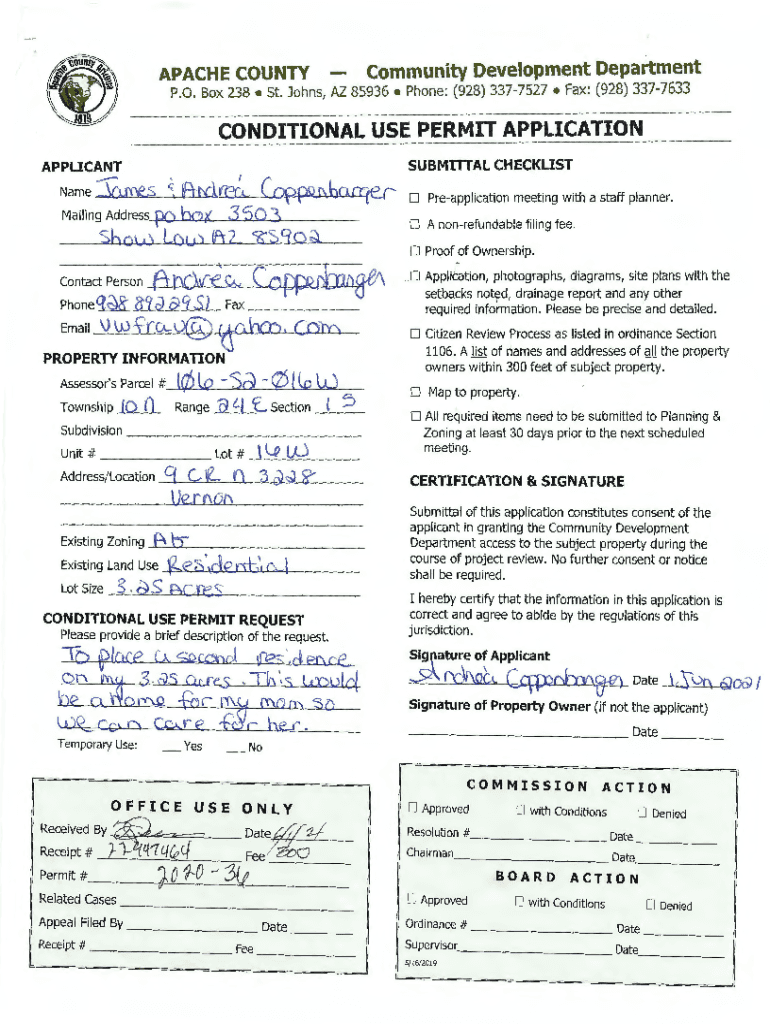 Apache County Arizona
1879
APACHE COUNTY — Community Development Department
P.O. Box 238 • St. Johns, AZ 85936 • Phone: (928) 337-7527 • Fax: (928) 337-7633
CONDITIONAL USE PERMIT APPLICATION
APPLICANT
Name James & Andrea Coppenbarger
Mailing Address po box 3503
Show Low AZ 85902
Contact Person Andrea Coppenbarger
Phone 928 892 2951 Fax
Email vwfrau@yahoo.com
PROPERTY INFORMATION
Assessor's Parcel # 106-52-016W
Township 10 N Range 24 E Section 15
Subdivision
Unit # Lot # 16W
Address/Location 9 CR N 3228
Vernon
Existing Zoning
Existing Land Use Residential
Lot Size 3.25 Acres
CONDITIONAL USE PERMIT REQUEST
Please provide a brief description of the request.
To place a second residence
on my 3.25 acres. This would
be a Home for my mom so
we can care for her.
Temporary Use: Yes No
OFFICE USE ONLY
Received By Date
Receipt # 22447464 Fee
Permit # 2020-36
Related Cases
Appeal Filed By Date
Receipt # Fee
SUBMITTAL CHECKLIST
Pre-application meeting with a staff planner.
A non-refundable filing fee.
Proof of Ownership.
Application, photographs, diagrams, site plans with the
setbacks noted, drainage report and any other
required information. Please be precise and detailed.
Citizen Review Process as listed in ordinance Section
1106. A list of names and addresses of all the property
owners within 300 feet of subject property.
Map to property.
All required items need to be submitted to Planning &
Zoning at least 30 days prior to the next scheduled
meeting.
CERTIFICATION & SIGNATURE
Submittal of this application constitutes consent of the
applicant in granting the Community Development
Department access to the subject property during the
course of project review. No further consent or notice
shall be required.
I hereby certify that the information in this application is
correct and agree to abide by the regulations of this
jurisdiction.
Signature of Applicant
Andrea Coppenbarger Date 1 Jun 2021
Signature of Property Owner (if not the applicant)
Date
COMMISSION ACTION
Approved with Conditions Denied
Resolution # Date
Chairman Date
BOARD ACTION
Approved with Conditions Denied
Ordinance # Date
Supervisor Date